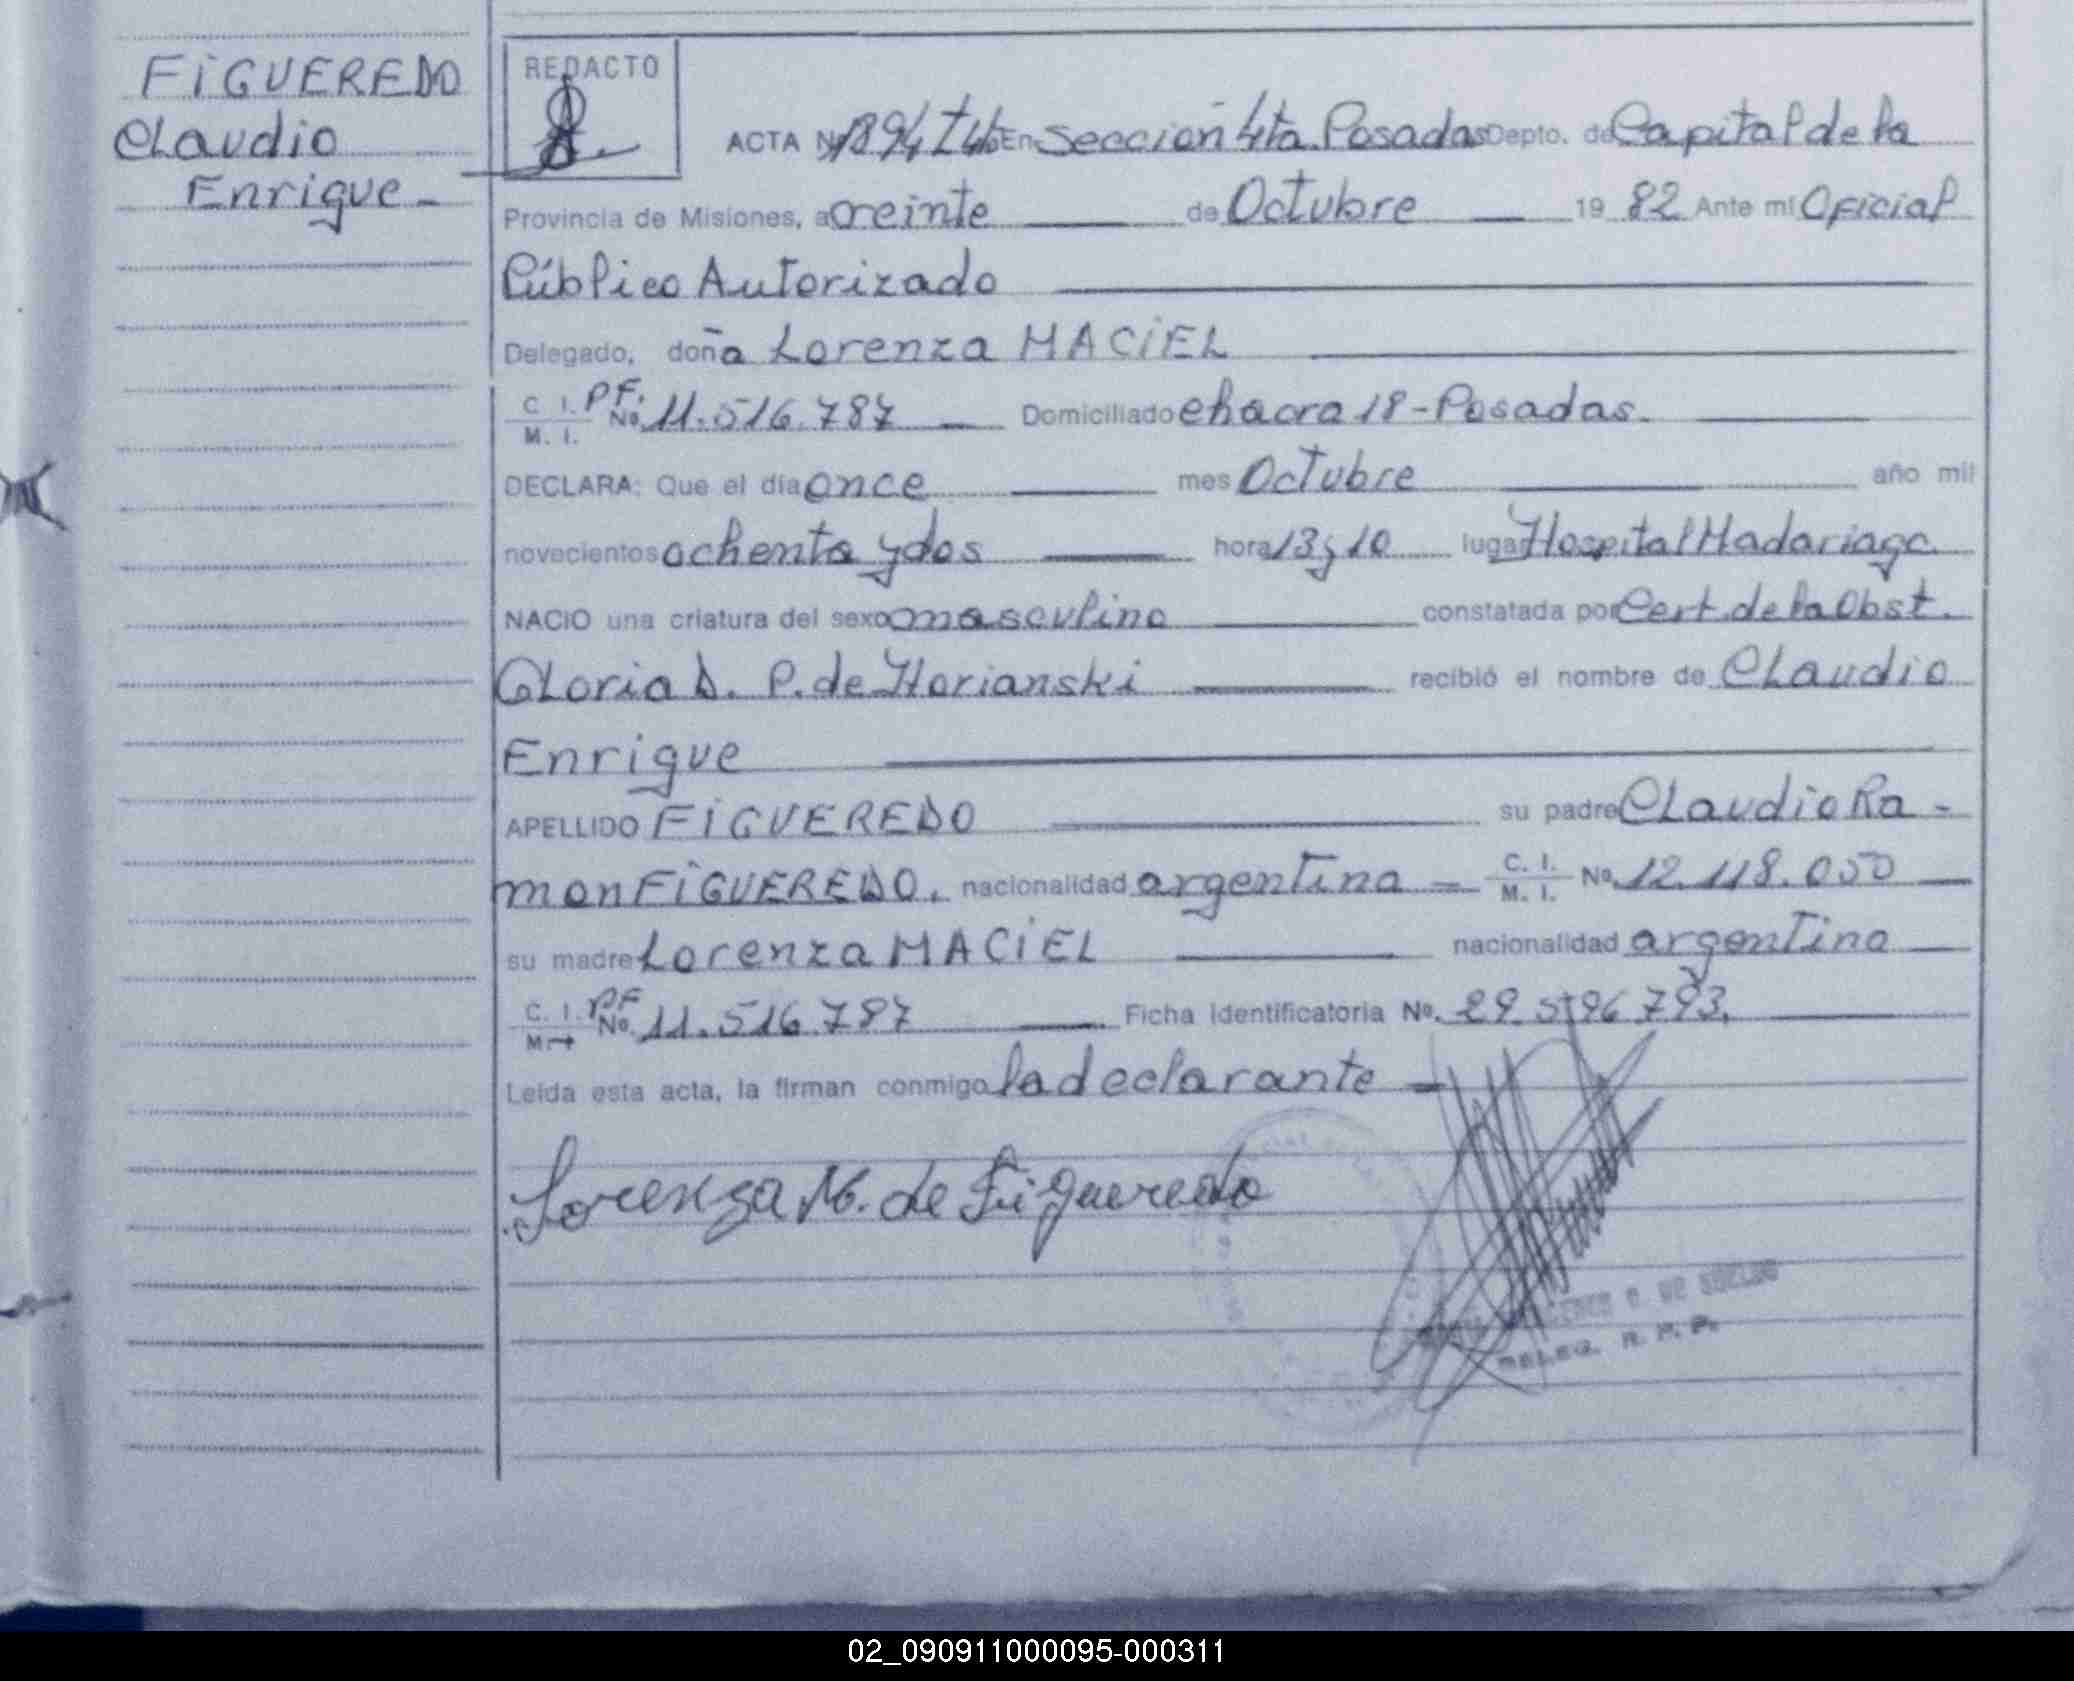 FIGUEREDO
Claudio
Enrique -
REDACTO
ACTA Nº 1894 T 4to En Sección 4ta. Posadas Depto. de Capital de la
Provincia de Misiones, a veinte de Octubre 19 82 Ante mí Oficial
Público Autorizado
Delegado, doña Lorenza MACIEL
C. I. M. I. PF. No. 11.516.787 Domiciliado chacra 18 - Posadas.
DECLARA: Que el día once mes Octubre año mil
novecientos ochenta y dos hora 13 y 10 lugar Hospital Madariaga
NACIO una criatura del sexo masculino constatada por Cert. de la Obst.
Gloria D. P. de Horianski recibió el nombre de Claudio
Enrique
APELLIDO FIGUEREDO su padre Claudio Ra -
mon FIGUEREDO. nacionalidad argentina - C. I. M. I. No. 12.118.050
su madre Lorenza MACIEL nacionalidad argentina
C. I. M. PF No. 11.516.787 Ficha identificatoria No. 29.596.793.
Leída esta acta, la firman conmigo la declarante -
Lorenza M. de Figueredo
DE SUELDO
DELEG. R. P. P.
02_090911000095-000311